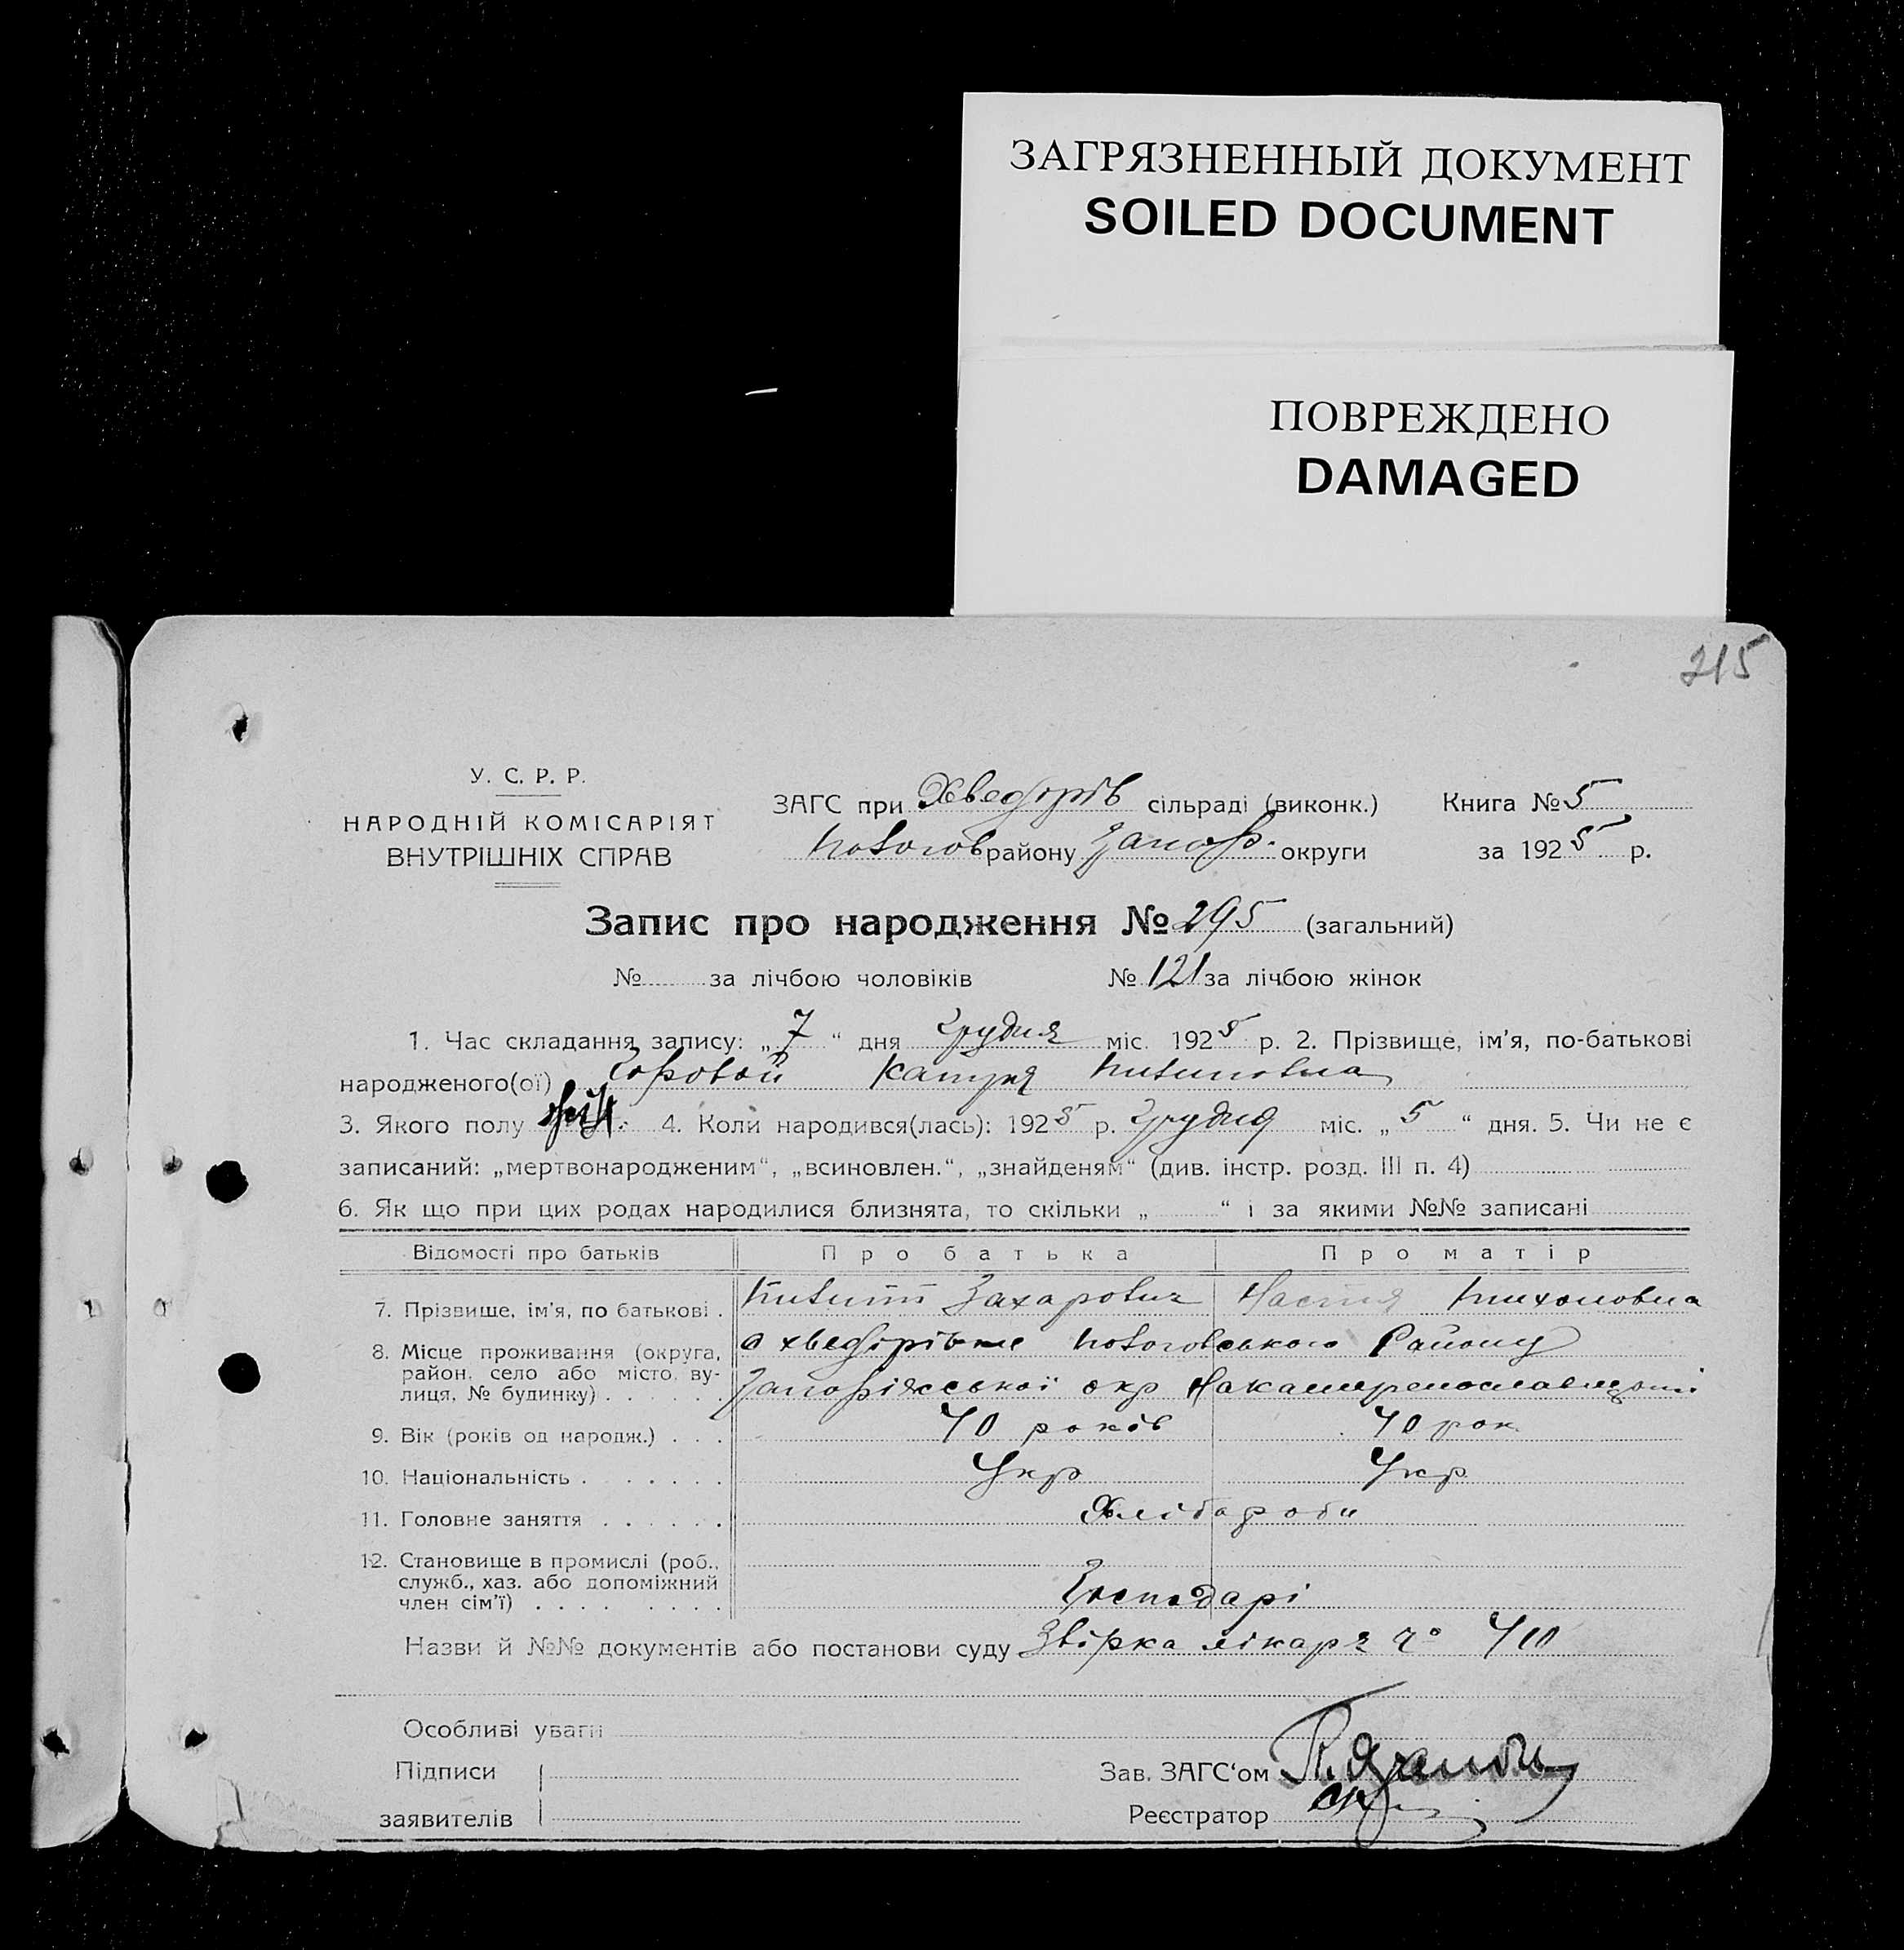 ЗАГРЯЗНЕННЫЙ ДОКУМЕНТ
SOILED DOCUMENT
ПОВРЕЖДЕНО
DAMAGED
215
У. С. Р. Р.
НАРОДНІЙ КОМІСАРІЯТ
ВНУТРІШНІХ СПРАВ
ЗАГС при Хведорів сільраді (виконк.) Книга № 5
району Запор. округи за 1925 р.
Запис про народження № 295 (загальний)
№ за лічбою чоловіків № 121 за лічбою жінок
1. Час складання запису: „7“ дня Грудня міс. 1925 р. 2. Прізвище, ім'я, по-батькові
народженого(ої)
3. Якого полу жін. 4. Коли народився(лась): 1925 р. Грудня міс. „5“ дня. 5. Чи не є
записаний: „мертвонародженим“, „всиновлен.“, „знайденям“ (див. інстр. розд. III п. 4)
6. Як що при цих родах народилися близнята, то скільки „ “ і за якими №№ записані
Відомості про батьків Про батька Про матір
7. Прізвище, ім'я, по батькові . Захарович Настя Тихоновна
8. Місце проживання (округа, район, село або місто, вулиця, № будинку) . Району
Запоріжської окр
9. Вік (років од народж.) . . . 40 років 40 рок.
10. Національність . . . . . Укр Укр
11. Головне заняття . . . . . . Хліборобн
12. Становище в промислі (роб., служб., хаз. або допоміжний член сім'ї) . . . . . . . . Господарі
Назви й №№ документів або постанови суду лікаря 410
Особливі уваги
Підписи
заявителів
Зав. ЗАГС'ом
Реєстратор